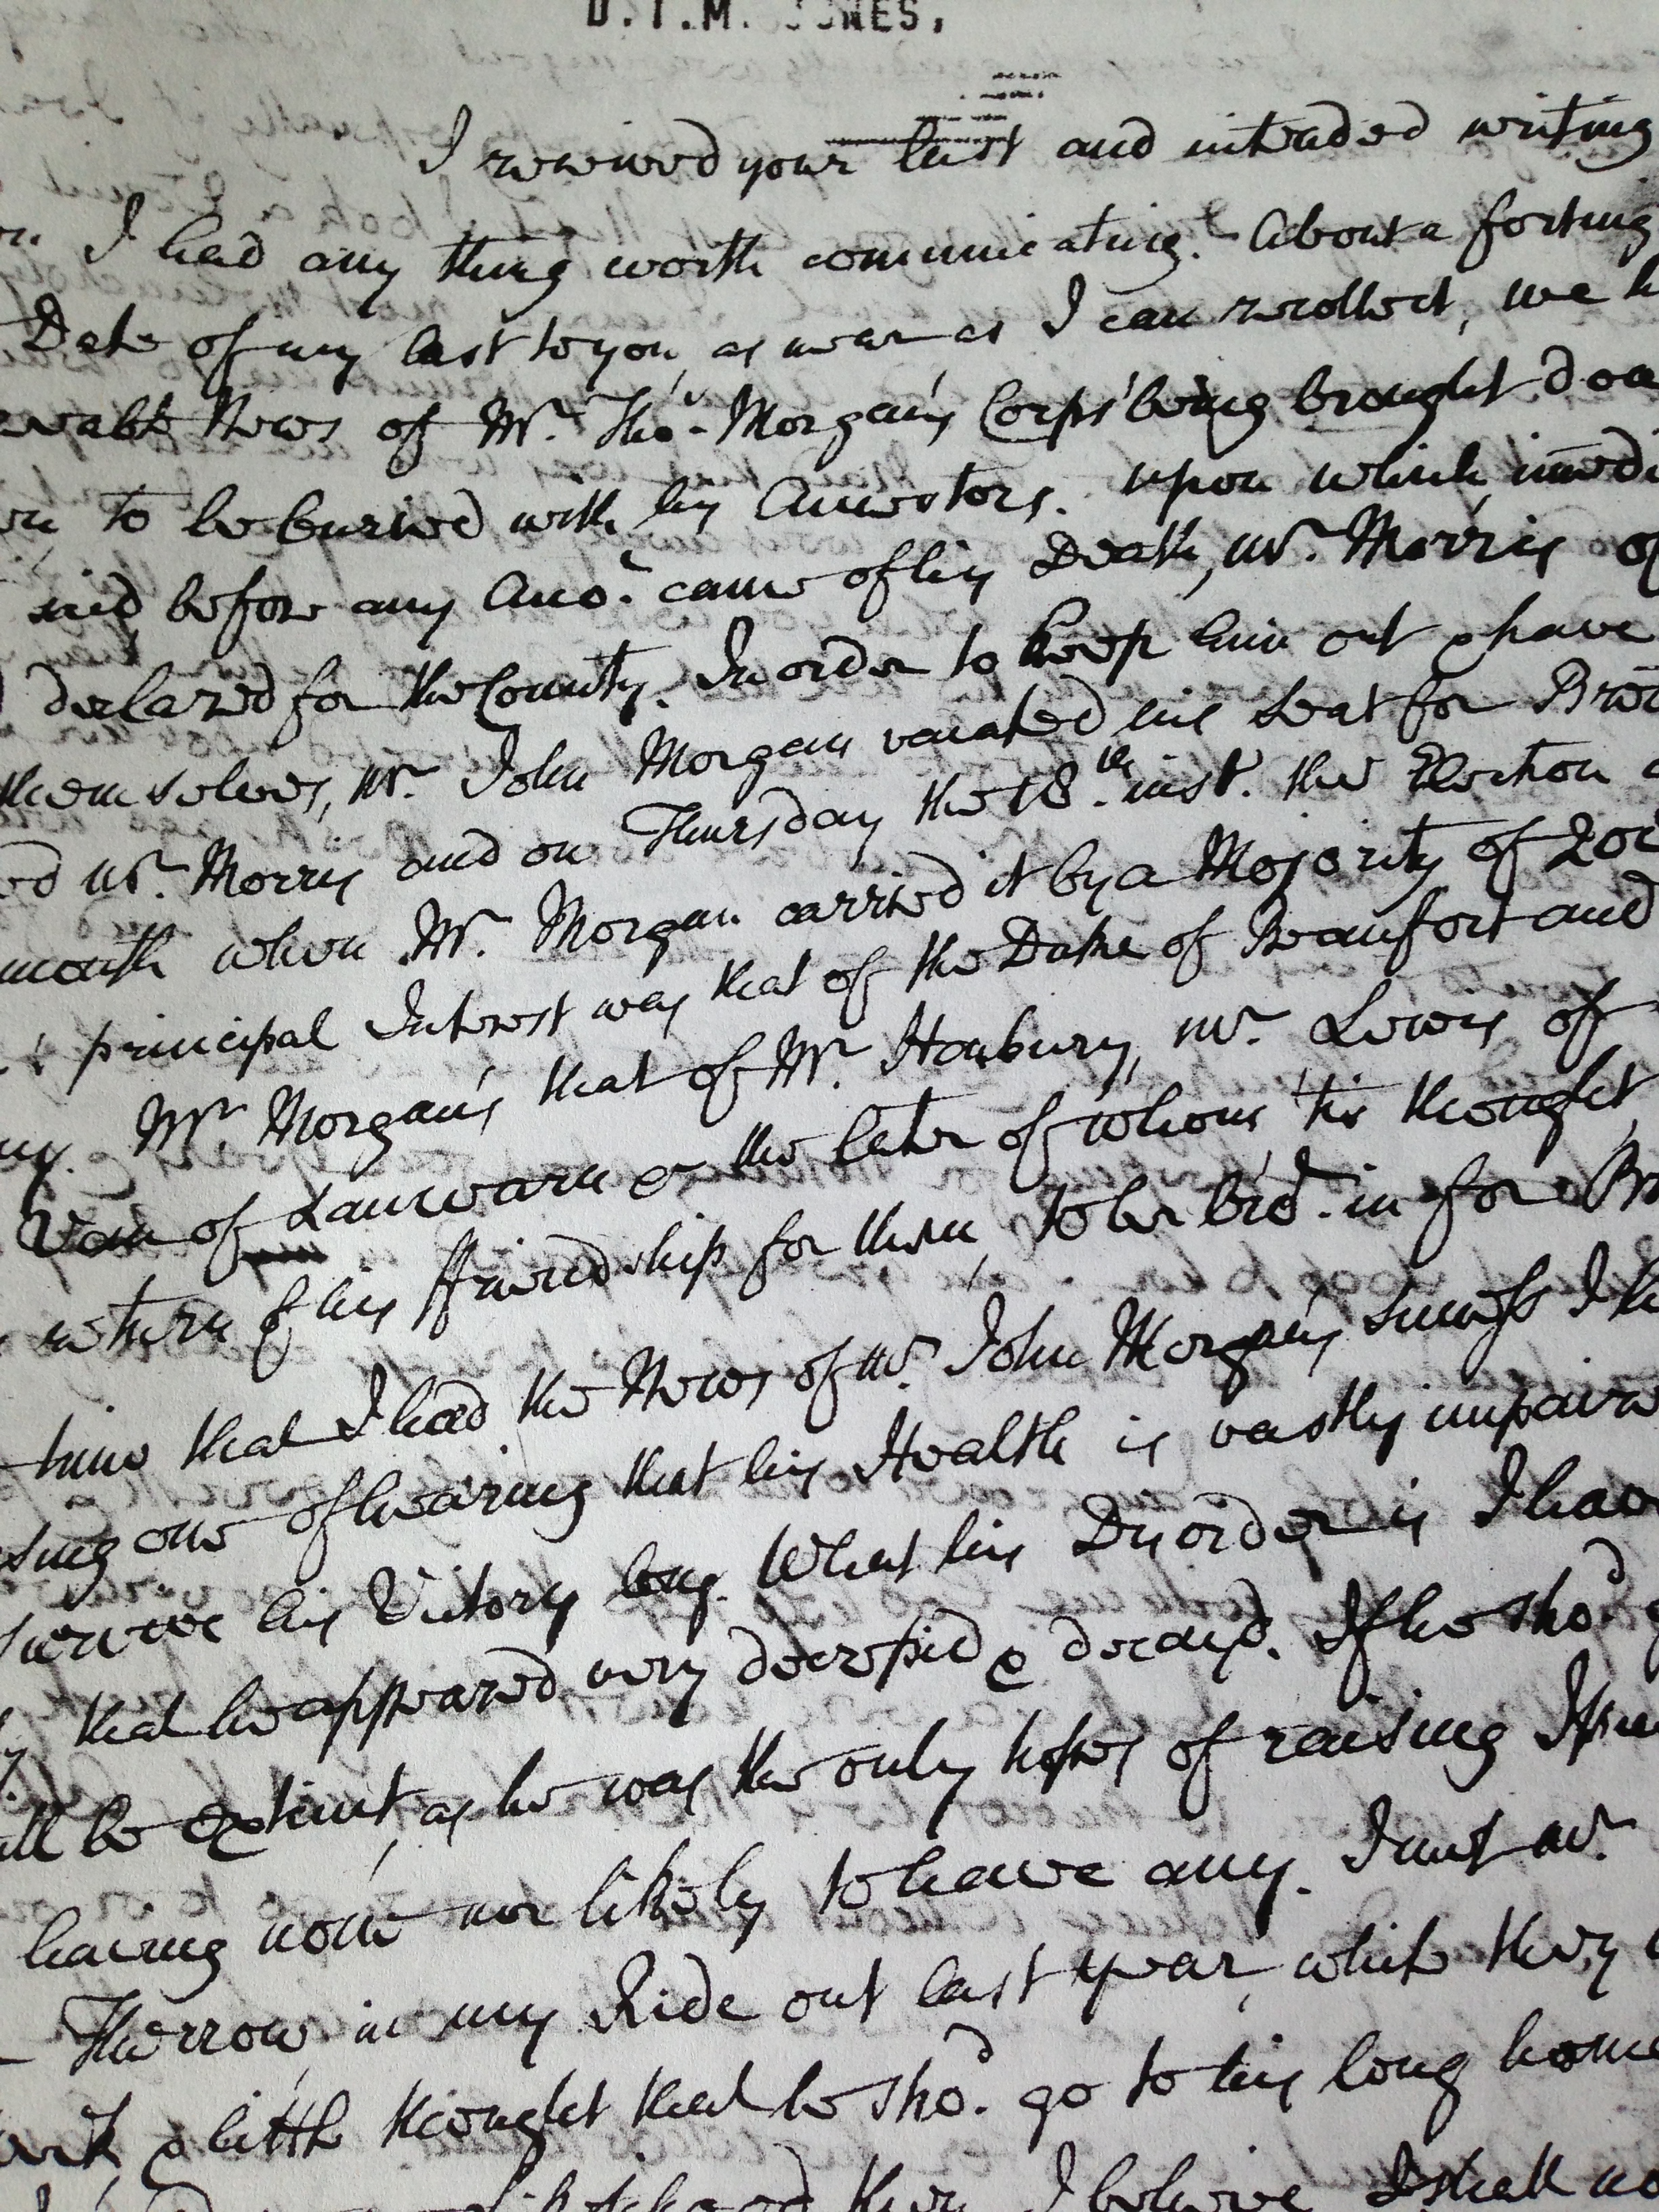 D.T.M. JONES,
I received your last and intended writing
I had any thing worth communicating. About a fortnig
Date of my last to you, as near as I can recollect, we h
News of Mr. Tho.s Morgan's Corps' being brought dow
to be buried with his Ancestors. upon which, immedi
and before any Acco.t came of his Death, Mr. Morris of
declared for the County. In order to keep him out & have
themselves, Mr. John Morgan vacated his Seat for Brec
ed Mr. Morris and on Thursday the 18.th inst. the Election
mouth when Mr. Morgan carried it by a Majority of
principal Interest was that of the Duke of Beaufort and
Mr. Morgan's that of Mr. Hanbury, Mr. Lewis of
Van of Lanwarn & the later of whom 'tis thought,
return of his ffriendship for them, to be bro.t in for Br
time that I had the News of Mr. John Morgan's success I h
sing one of hearing that his Health is vastly impaire
survive his Victory long. What his Disorder is I have
that he appeared very decrepid & decay'd. If he sho.d
ll be extinct, as he was the only hopes of raising Issue
having none nor likely to have any. I met Mr.
Therrow in my Ride out last year, which they
& little thought that he sho.d go to his long home
I believe I shall no